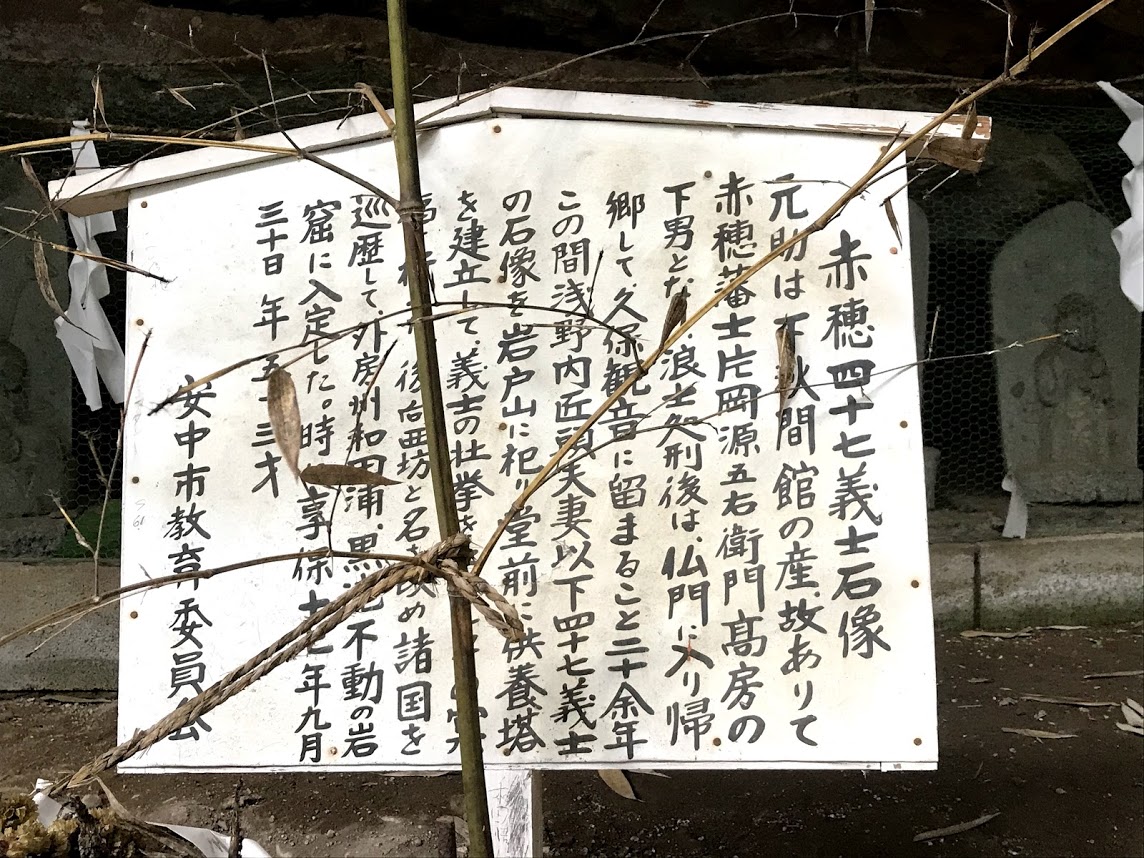 赤穂四十七義士石像
元助は下秋間館の産、故ありて
赤穂藩士片岡源五右衛門高房の
下男とな、浪士処刑後は、仏門に入り帰
郷して、久保観音に留まること二十余年
この間浅野内匠頭夫妻以下四十七義士
の石像を岩戸山に祀り堂前に供養塔
を建立して、義士の壮挙を
福 後 西坊と名を改め諸国を
巡歴して、外房州和田浦、黒 不動の岩
窟に入定した。時 享保十七年九月
三十日 年五十三才
安中市教育委員会